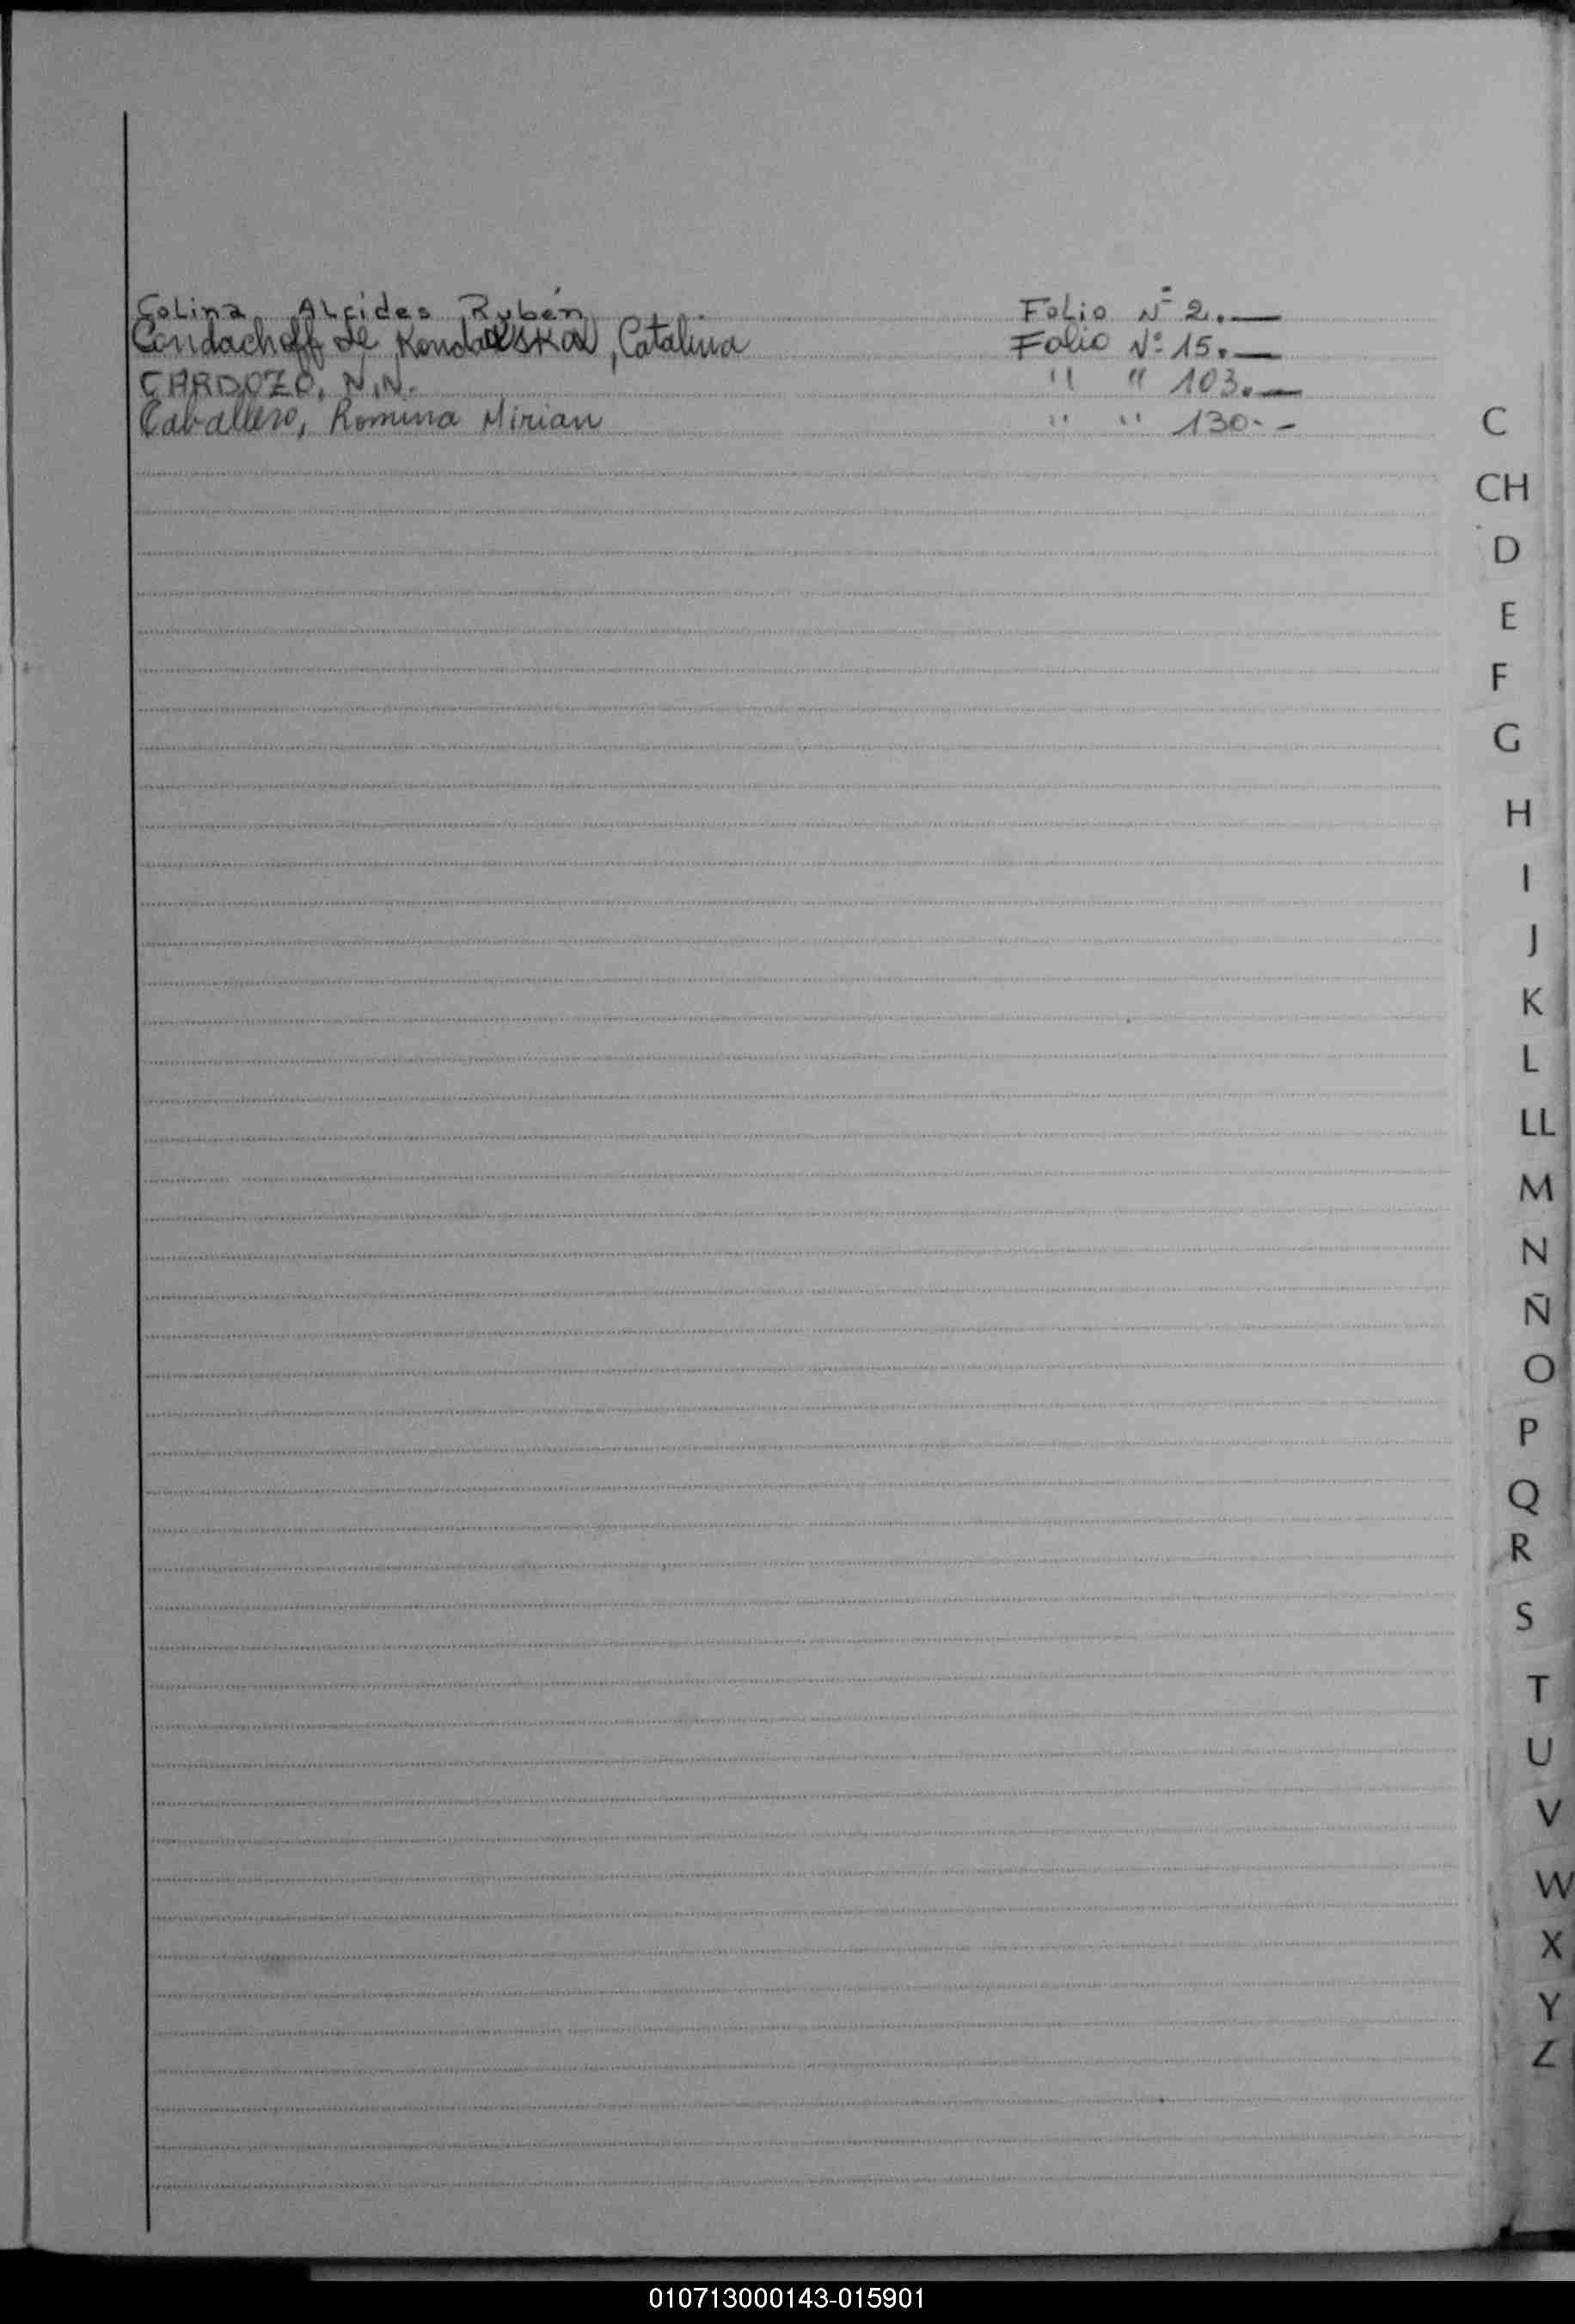 Colina Alcides Rubén Folio Nº 2.—
Condachoff de , Catalina Folio Nº 15.—
CARDOZO, N.N. " " 103.—
Caballero, Romina Mirian " " 130.-
C
CH
D
E
F
G
H
I
J
K
L
LL
M
N
Ñ
O
P
Q
R
S
T
U
V
W
X
Y
Z
010713000143-015901